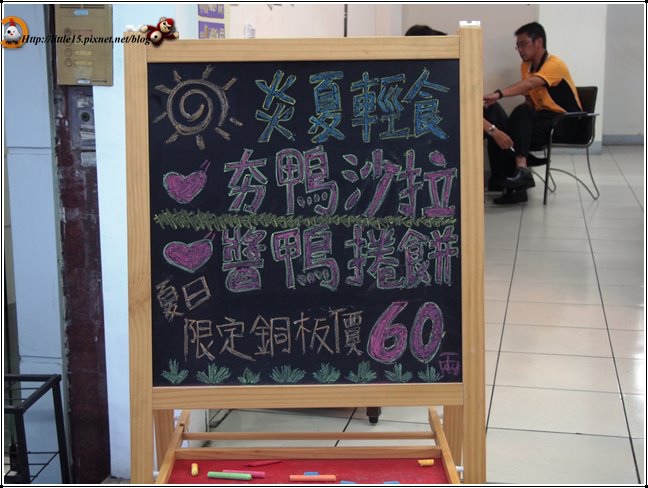 Http://little15.pixnet.net/blog
炎夏輕食
夯鴨沙拉
醬鴨捲餅
夏日
限定銅板價60